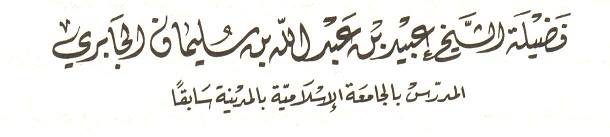 فَضِيلَة الشَّيْخ عُبَيْد بْن عَبْد اللَّه بْن سُلَيْمَان الجَابِرِي
المدَرّس بِالجَامِعَة الإِسْلَامِيَّة بِالمَدِينَة سَابقًا